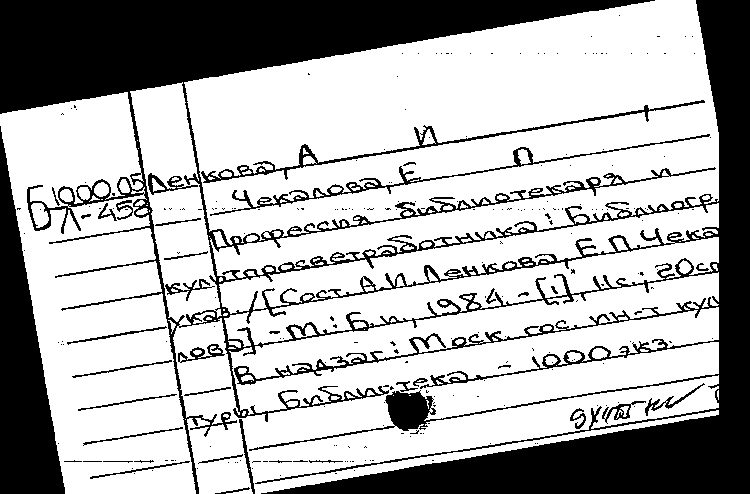 Б1000.05 Ленкова, А И
Л-458 Чекалова, Е П
Профессия библиотекаря и
культпросветработника: Библиогр.
указ. / [Сост. А.И. Ленкова, Е.П. Чека
лова]. - М.: Б.и., 1984. - [1], 11с.; 20см
В надзаг: Моск. гос. ин-т куль
туры, Библиотека. - 1000 экз.